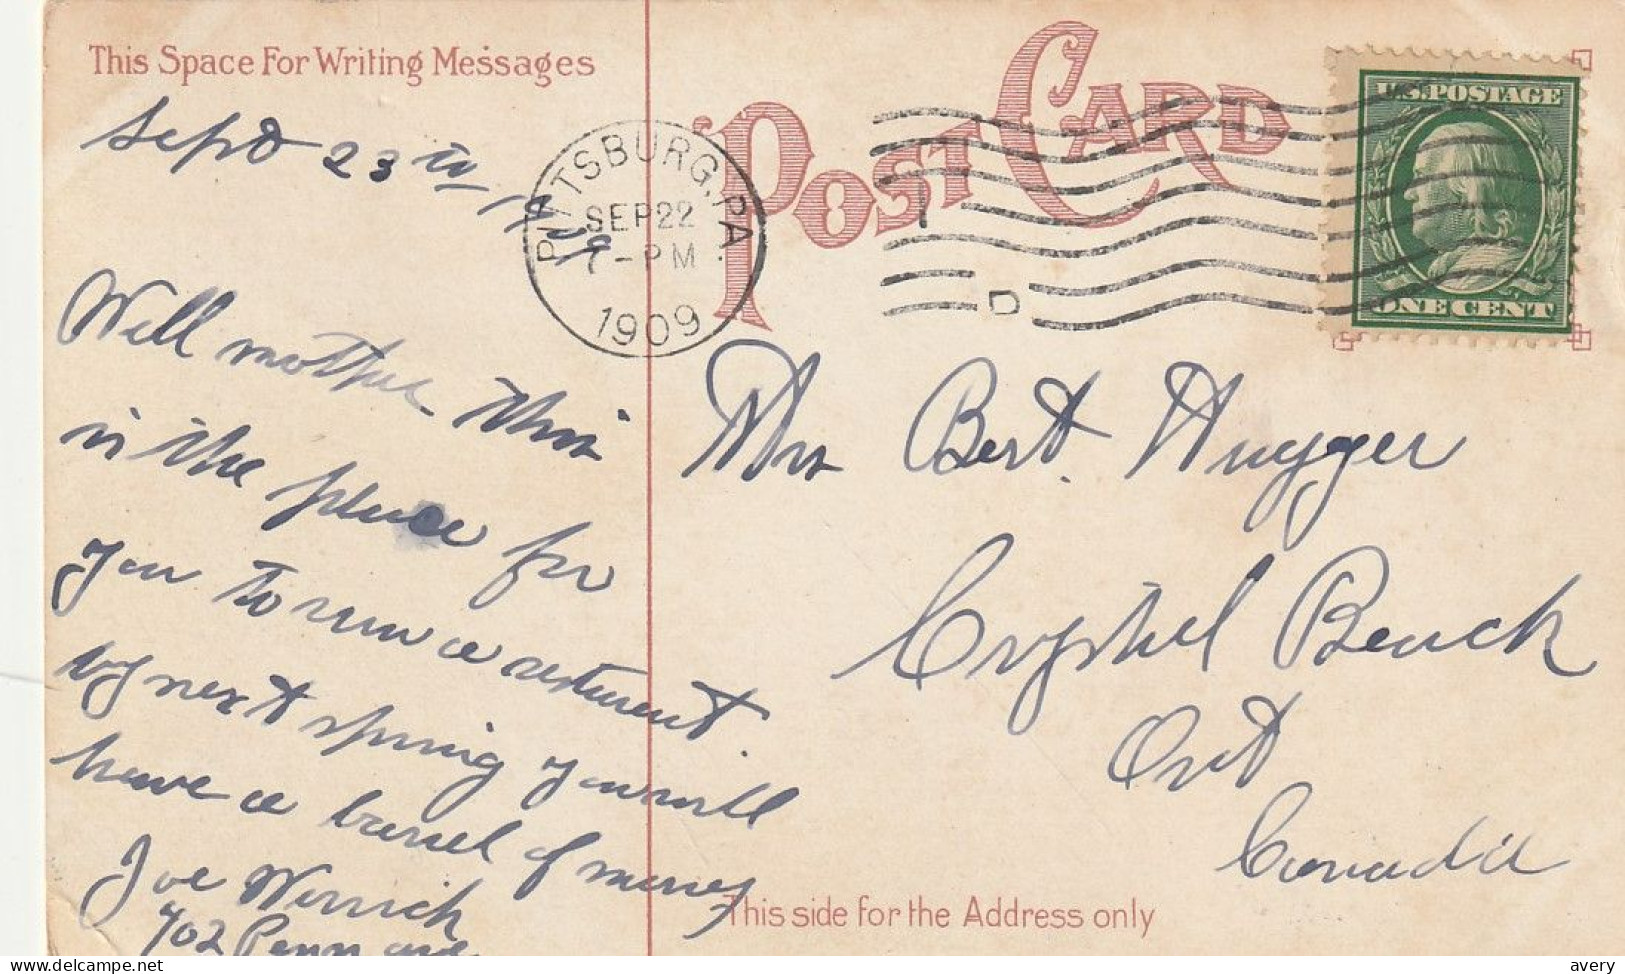 This Space For Writing Messages
POST CARD
U.S. POSTAGE
ONE CENT
PITTSBURG, PA.
SEP 22
7-PM
1909
D
Sept 23rd 1909
Well mother this
in the place for
you to run a resturent.
by next spring you will
have a barrel of money
Joe
702 Penn ave
Mrs Bert. Hugger
Crystel Beach
Ont
Canada
This side for the Address only
delcampe.net
avery